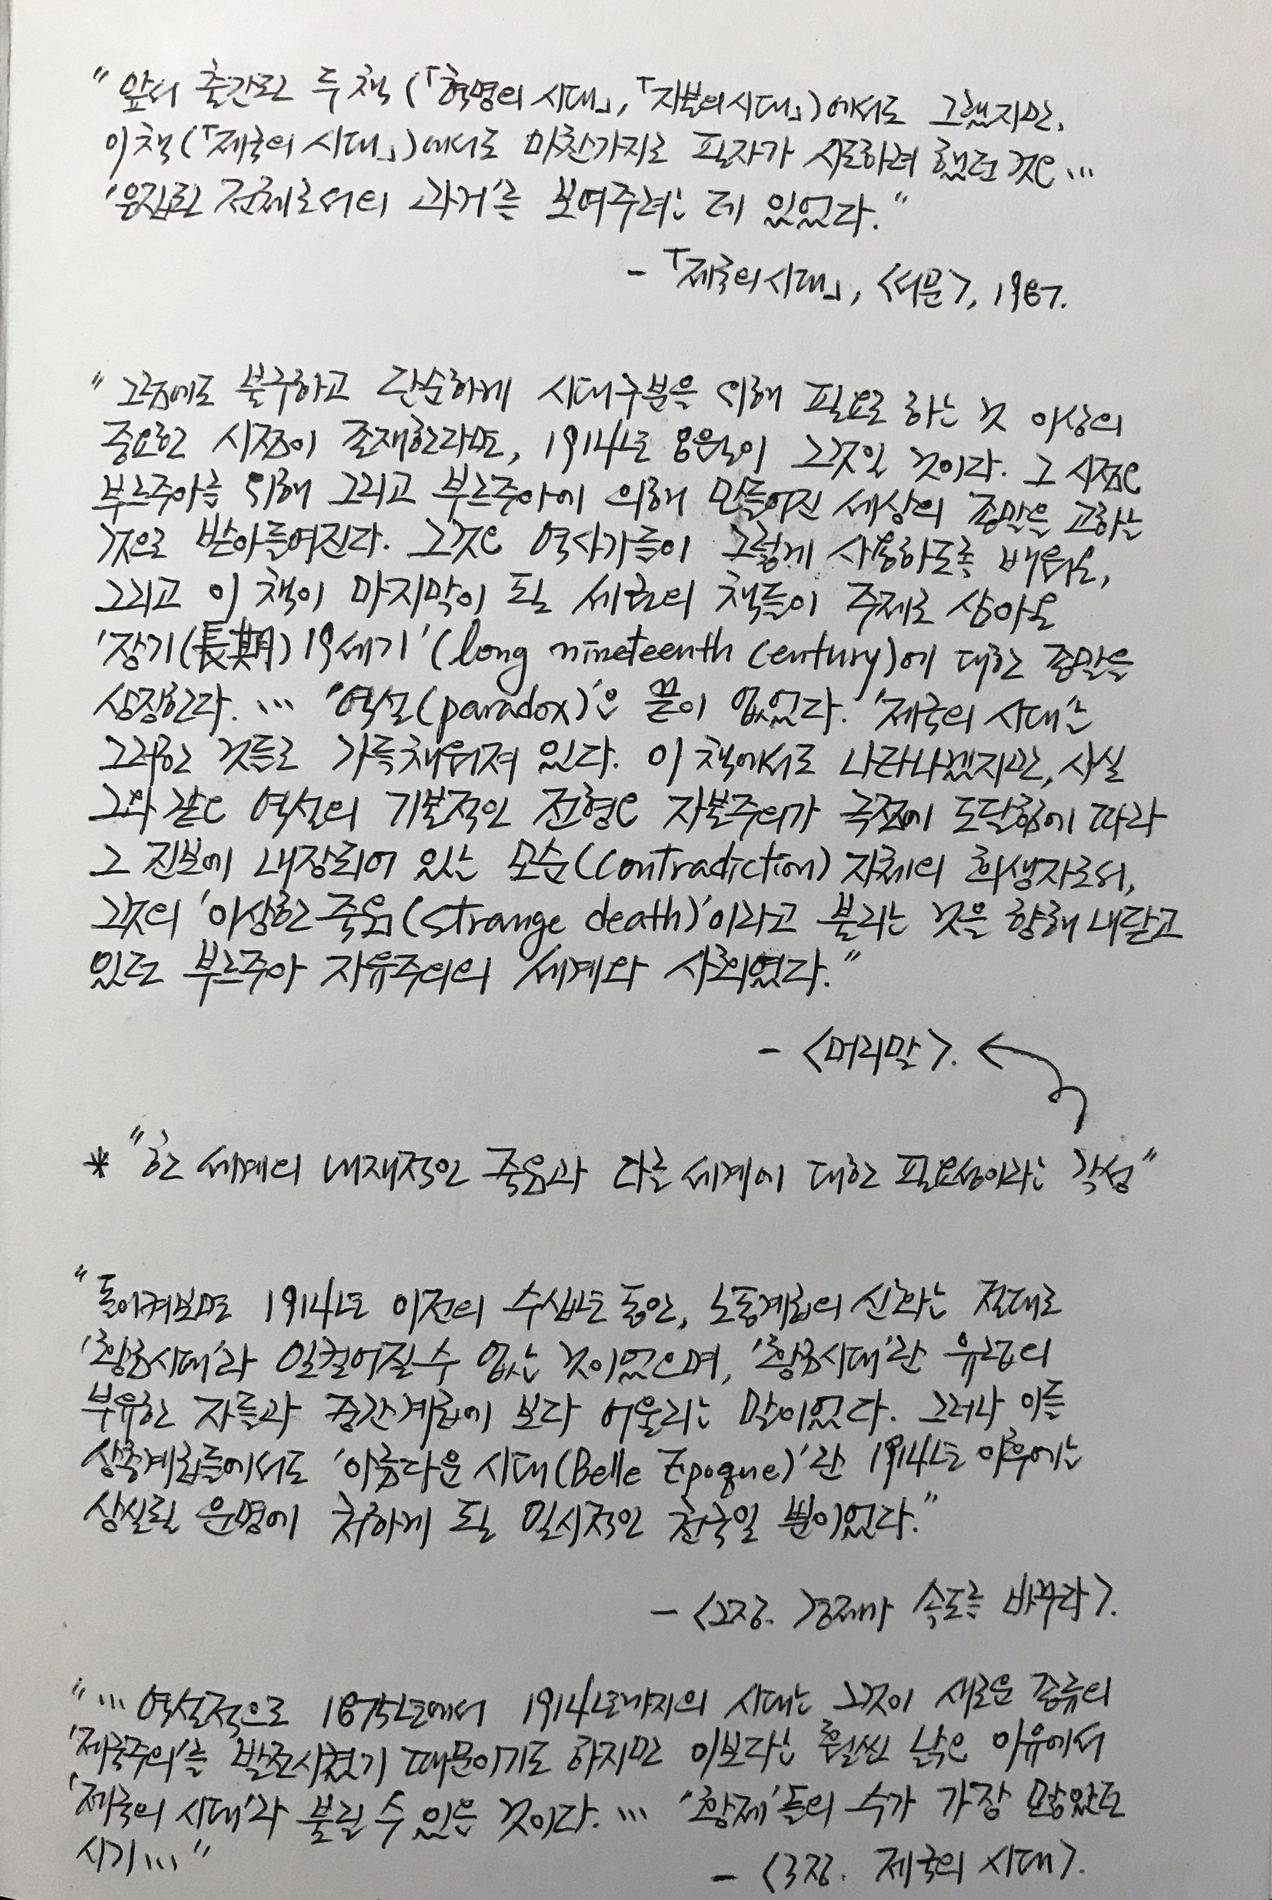 "앞서 출간된 두 책(「혁명의 시대」,「자본의 시대」)에서도 그랬지만,
이 책(「제국의 시대」)에서도 마찬가지로 필자가 시도하려 했던 것은…
'응집된 전체로서의 과거'를 보여주려는 데 있었다."
-「제국의 시대」, <서문>, 1987.
"그럼에도 불구하고 단순하게 시대구분을 위해 필요로 하는 것 이상의
중요한 시점이 존재한다면, 1914년 8월이 그것일 것이다. 그 시점은
부르주아를 위해 그리고 부르주아에 의해 만들어진 세상의 종말을 고하는
것으로 받아들여진다. 그것은 역사가들이 그렇게 사용하도록 배워온,
그리고 이 책이 마지막이 될 세 권의 책들이 주제로 삼아온
'장기(長期) 19세기'(long nineteenth century)에 대한 종말을
상징한다. … '역설(paradox)'은 끝이 없었다. '제국의 시대'는
그러한 것들로 가득 채워져 있다. 이 책에서도 나타나겠지만, 사실
그와 같은 역설의 기본적인 전형은 자본주의가 극점에 도달함에 따라
그 진보에 내장되어 있는 모순(contradiction) 자체의 희생자로서,
그것의 '이상한 죽음(strange death)'이라고 불리는 것을 향해 내닫고
있던 부르주아 자유주의의 세계와 사회였다."
- <머리말>. ←
* "한 세계의 내재적인 죽음과 다른 세계에 대한 필요성이라는 각성"
"돌이켜보면 1914년 이전의 수십년 동안, 노동계급의 신화는 절대로
'황금시대'라 일컬어질 수 없는 것이었으며, '황금시대'란 유럽의
부유한 자들과 중간계급에 보다 어울리는 말이었다. 그러나 이들
상층계급들에서도 '아름다운 시대(Belle Epoque)'란 1914년 이후에는
상실될 운명에 처하게 될 일시적인 천국일 뿐이었다."
- <2장. 경제가 속도를 바꾸다>.
"… 역설적으로 1875년에서 1914년까지의 시대는 그것이 새로운 종류의
'제국주의'를 발전시켰기 때문이기도 하지만 이보다는 훨씬 낡은 이유에서
'제국의 시대'라 불릴 수 있을 것이다. … '황제'들의 수가 가장 많았던
시기…"
- <3장. 제국의 시대>.